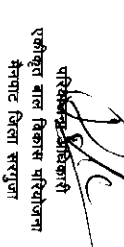 परियोजना अधिकारी
एकीकृत बाल विकास परियोजना
मैनपाट जिला सरगुजा